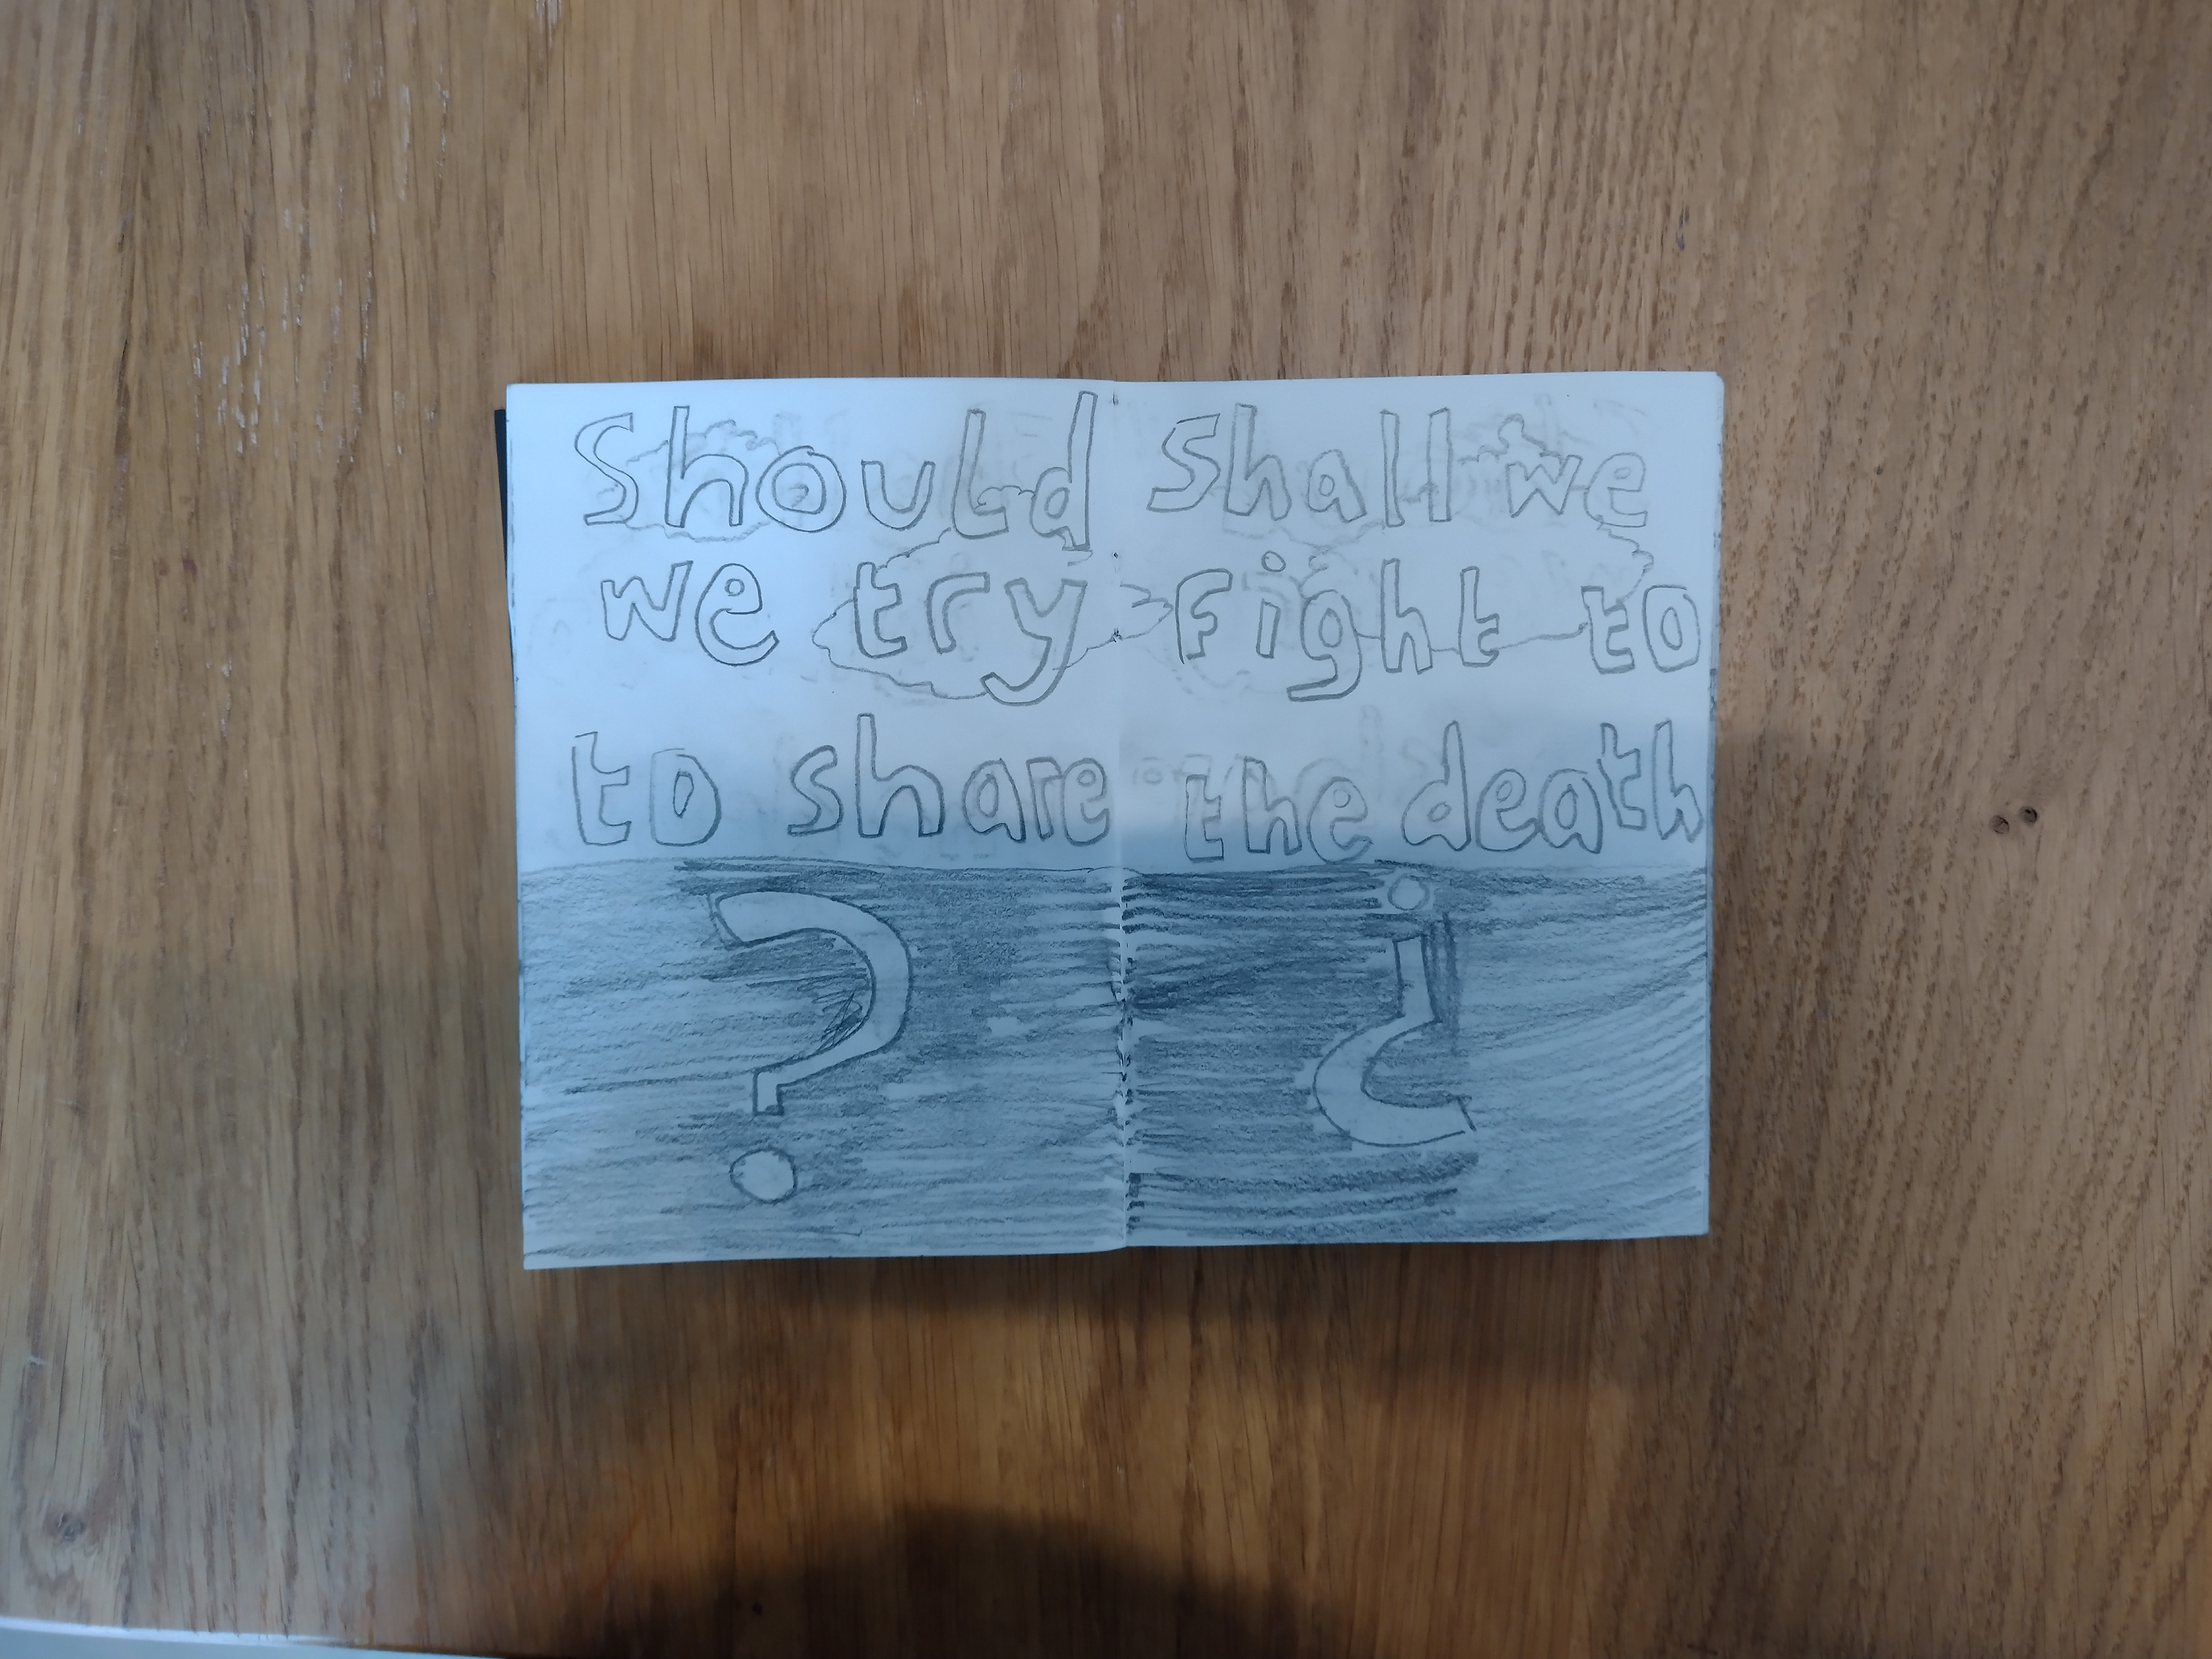 Should
we try
to share
?
Shall we
fight to
the death
¿